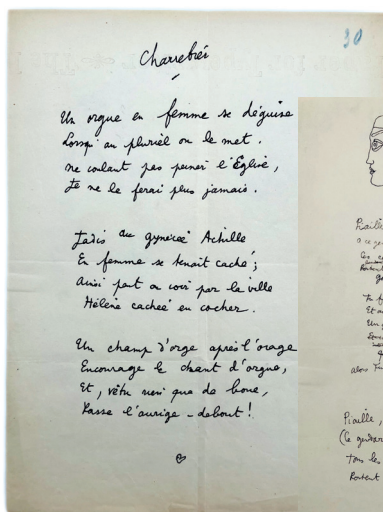 30
Un orgue en femme se déguise
Lorsqu'au pluriel on le met.
Ne voulant pas peiner l'Église,
Je ne le ferai plus jamais.
Jadis au gynécée Achille
En femme se tenait caché ;
Ainsi peut on voir par la ville
Hélène cachée en cocher.
Un champ d'orge après l'orage
Encourage le chant d'orgue,
Et, vêtu rien que de boue,
Passe l'aurige - debout !
Piaille
Piaille,
Tous les